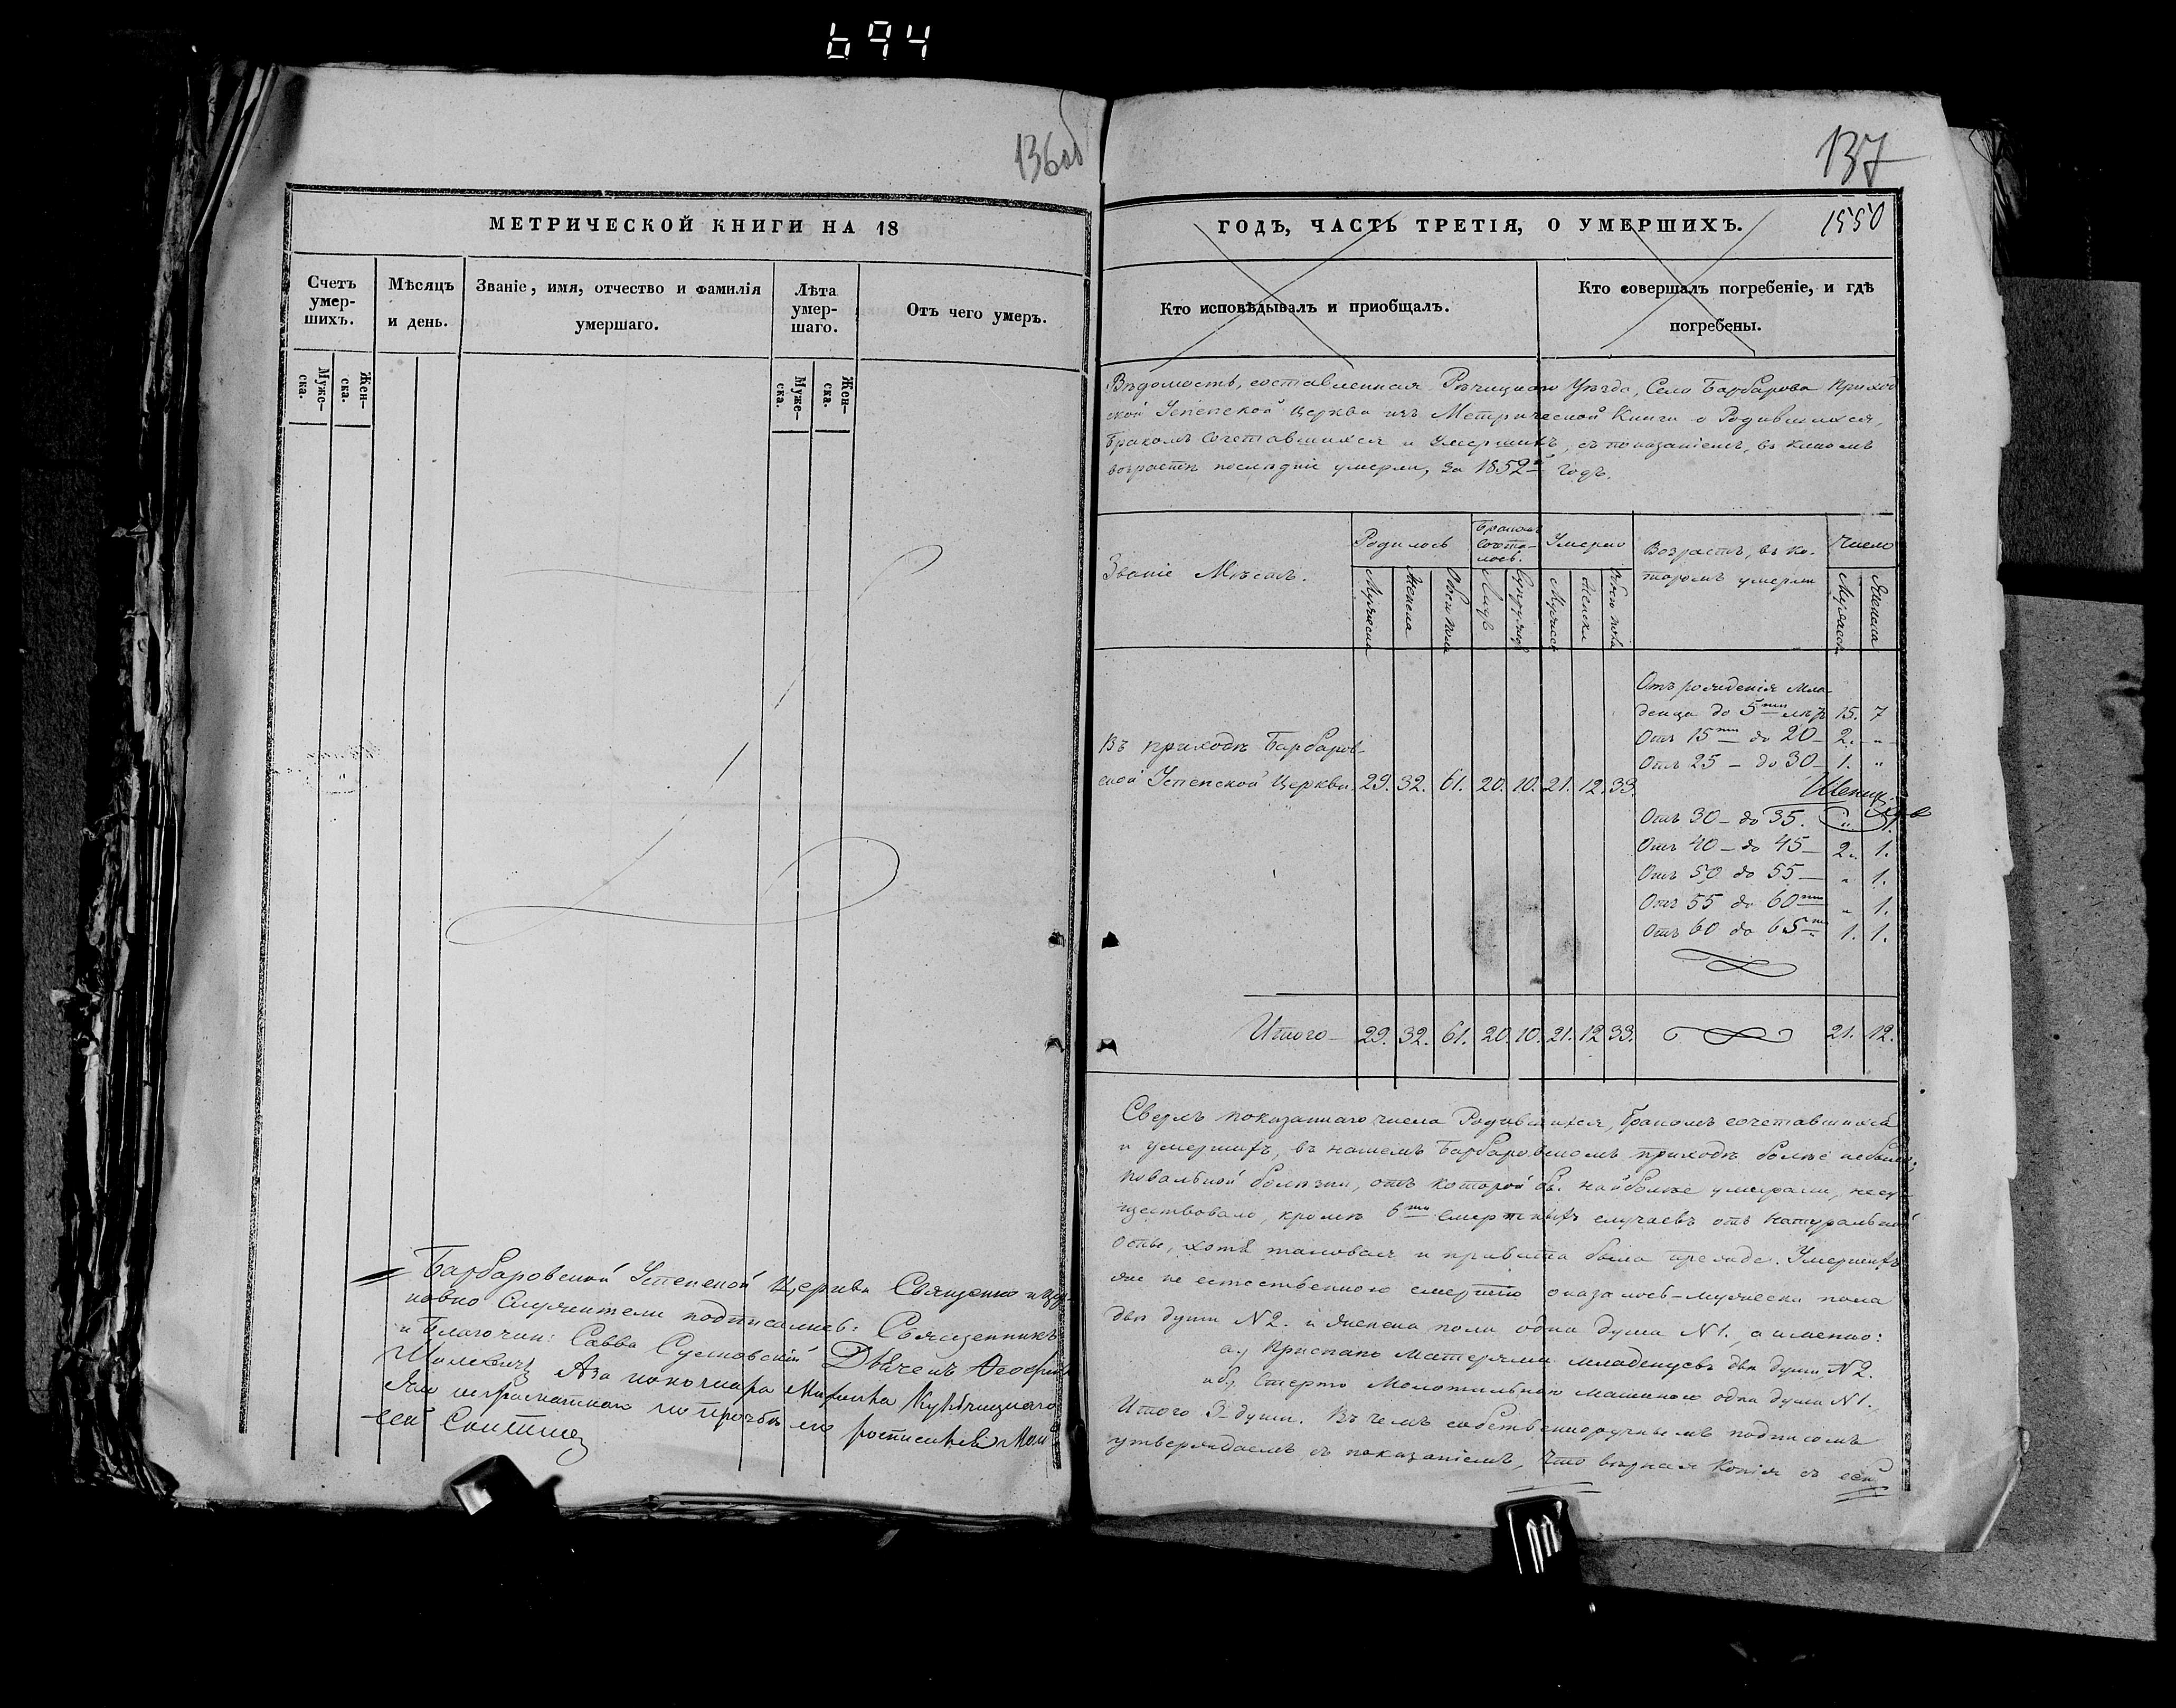 694
136об
МЕТРИЧЕСКОЙ КНИГИ НА 18
Счетъ умер-шихъ.
Мѣсяцъ и день.
Званіе, имя, отчество и фамилія умершаго.
Лѣта умер-шаго.
Отъ чего умеръ.
Муже-ска.
Жен-ска.
Муже-ска.
Жен-ска.
Барбаровской Успенской Церкви Священно и Цер-
ковно Служители подписались: Священникъ
и Благочин: Савва Сулковскій Дьячекъ Ѳеофил
Шолкевичъ Аза пономара
его росписался
137
1550
ГОДЪ, ЧАСТЬ ТРЕТІЯ, О УМЕРШИХЪ.
Кто исповѣдывалъ и приобщалъ.
Кто совершалъ погребеніе, и гдѣ погребены.
Вѣдомость, составленная Рѣчицкаго Уѣзда, Села Барбарова Приход
ской Успенской Церкви изъ Метрической Книги о Родившихся,
Бракомъ Сочетавшихся и Умершихъ, съ показаніемъ, въ какомъ
возрастѣ послѣдніе умерли, за 1852й Годъ.
Званіе Мѣстъ.
Родилось
Бракомъ сочета-лось.
Умерло
Возрастъ, въ ко-
торомъ умерли
Число
Мужеска
Женска
Обои пола
Лицъ
Супружес
Мужеска
Женска
Обои пола
Мужеска
Женска
Отъ рожденія мла-
денца до 5ти лѣтъ 15. 7
Отъ 15ти до 20 2. "
Отъ 25 - до 30 - 1. "
Въ приходѣ Барбаров-
ской Успенской Церкви. 29. 32. 61. 20. 10. 21. 12. 33.
Отъ 30 - до 35. " 1.
Отъ 40 - до 45 - 2. 1.
Отъ 50 до 55 - " 1.
Отъ 55 до 60ти " 1.
Отъ 60 до 65ти 1. 1.
Итого - 29. 32. 61. 20. 10. 21. 12 33. 21. 12.
Сверхъ показаннаго числа Родившихся, Бракомъ сочетавшихся
и Умершихъ, въ нашемъ Барбаровскомъ приходѣ болѣе небыло;
повальной болѣзни, отъ которой бы наиболѣе умирали, несу-
ществовало, кромѣ 6ти смертныхъ случаевъ отъ натуральной
оспы, хотя таковая и привита была прежде. Умершихъ
же не естественною смертію оказалось - мужеска пола
двѣ души N2. и женска пола одна душа N1., а именно:
а.) Приспано Матерями младенцевъ двѣ души N2.
и б.) Стерто Молотильною машиною одна душа N1.,
Итого 3 - души. Въ чемъ собственноручнымъ подписомъ
утверждаемъ съ показаніемъ, что вѣрная копія съ